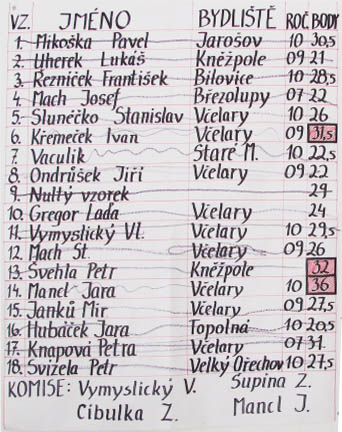 VZ. JMÉNO BYDLIŠTĚ ROČ BODY
1. Mikoška Pavel Jarošov 10 30,5
2. Uherek Lukáš Kněžpole 09 21
3. Řezníček František Bílovice 10 28,5
4. Mach Josef Březolupy 07 22
5. Slunéčko Stanislav Včelary 10 26
6. Křemeček Ivan Včelary 09 31,5
7. Vaculik Staré M. 10 22,5
8. Ondrůšek Jiří Včelary 09 22
9. Nultý vzorek 29
10. Gregor Lada Včelary 24
11. Vymyslický Vl. Včelary 10 29,5
12. Mach St. Včelary 09 26
13. Švehla Petr Kněžpole 32
14. Mancl Jara Včelary 10 36
15. Janků Mir Včelary 09 27,5
16. Hubáček Jara Topolná 10 20,5
17. Knapová Petra Včelary 07 31
18. Svízela Petr Velký Ořechov 10 27,5
KOMISE: Vymyslický V. Šupina Z.
Cibulka Z. Mancl J.